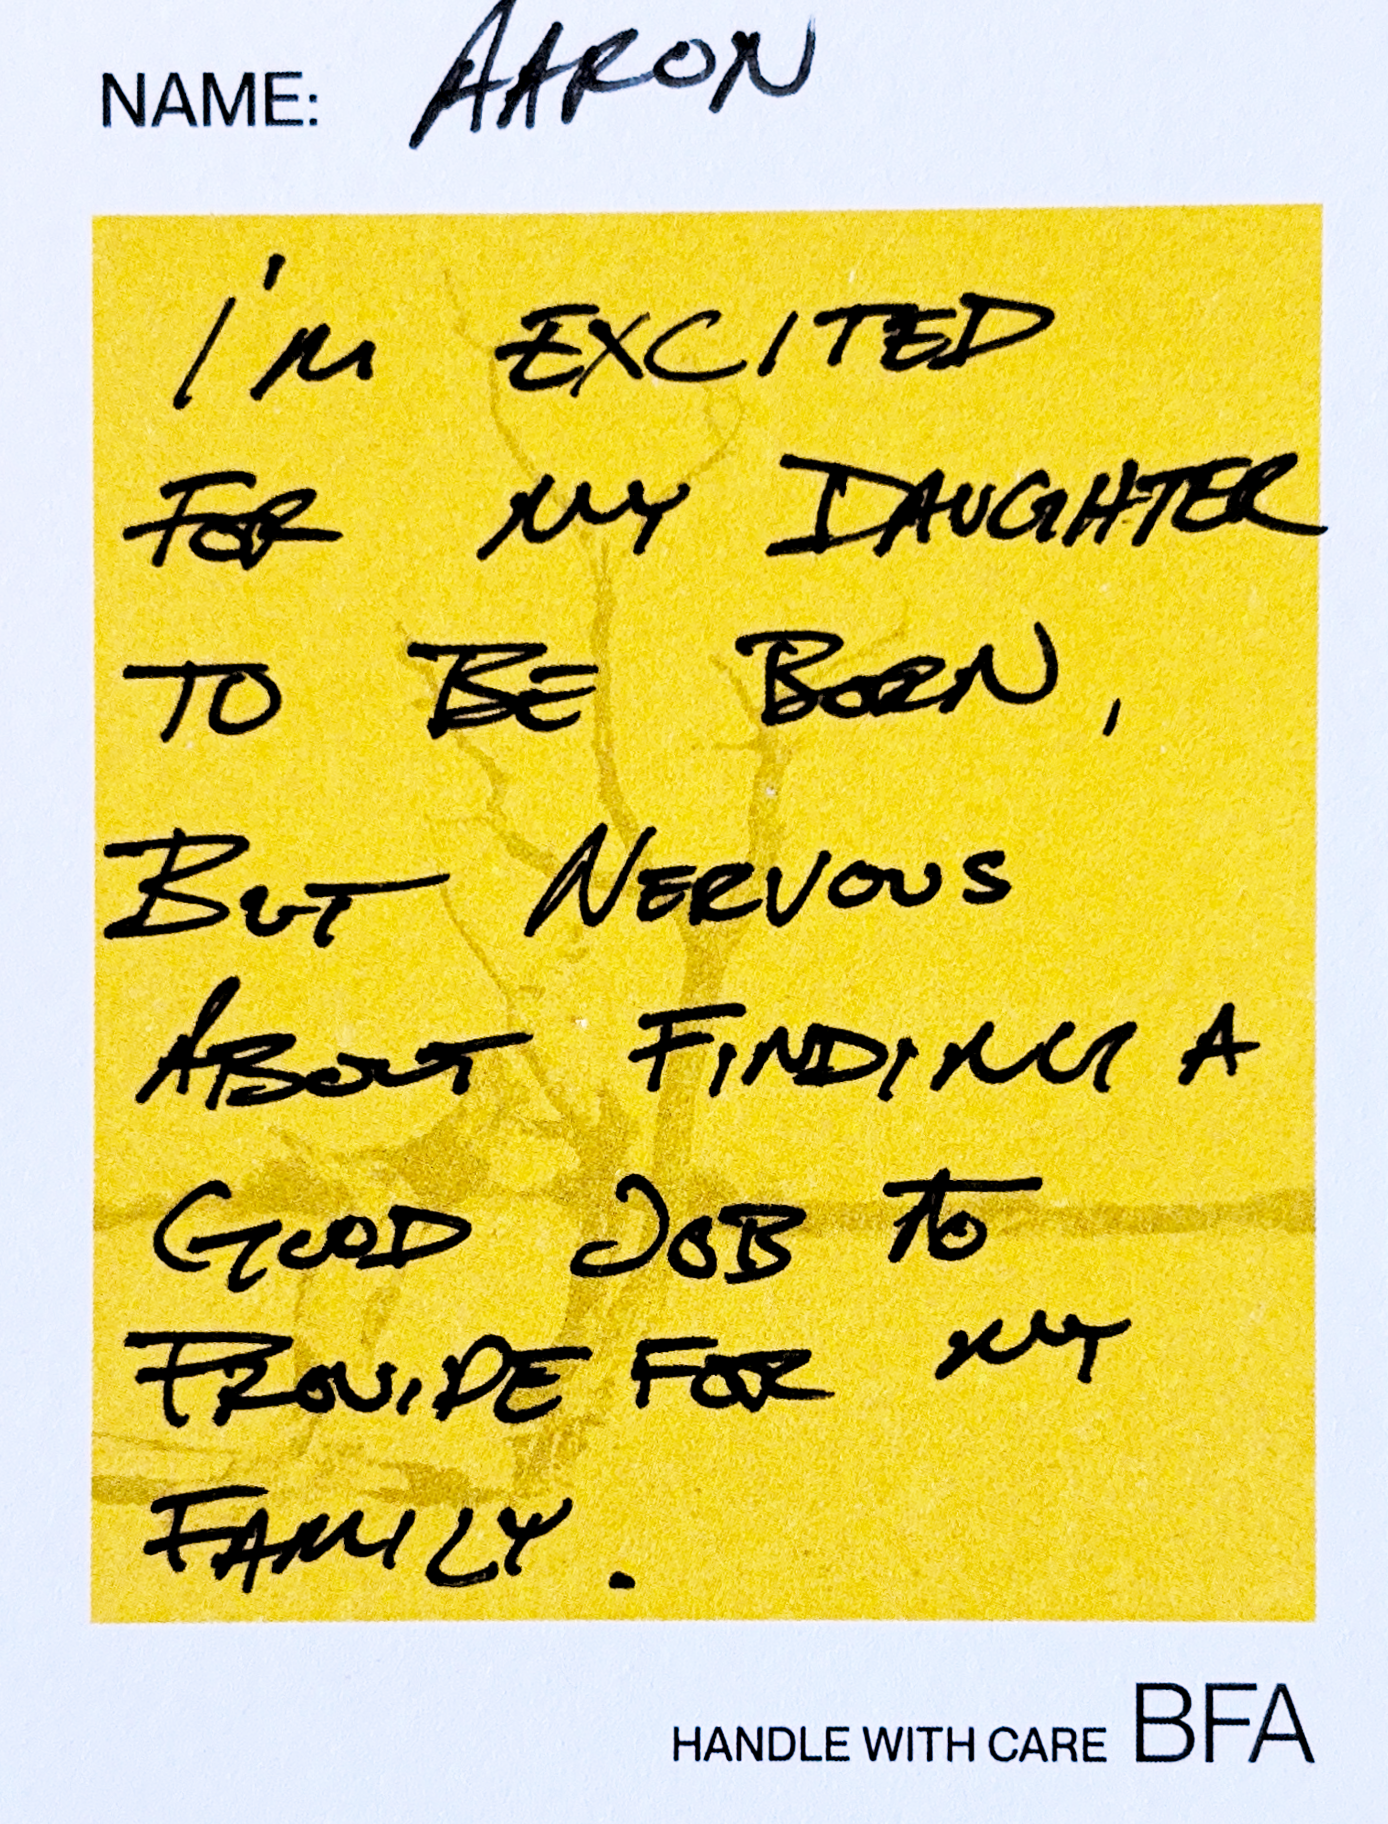 NAME: AARON
I'M EXCITED
FOR MY DAUGHTER
TO BE BORN,
BUT NERVOUS
ABOUT FINDING A
GOOD JOB TO
PROVIDE FOR MY
FAMILY.
HANDLE WITH CARE BFA